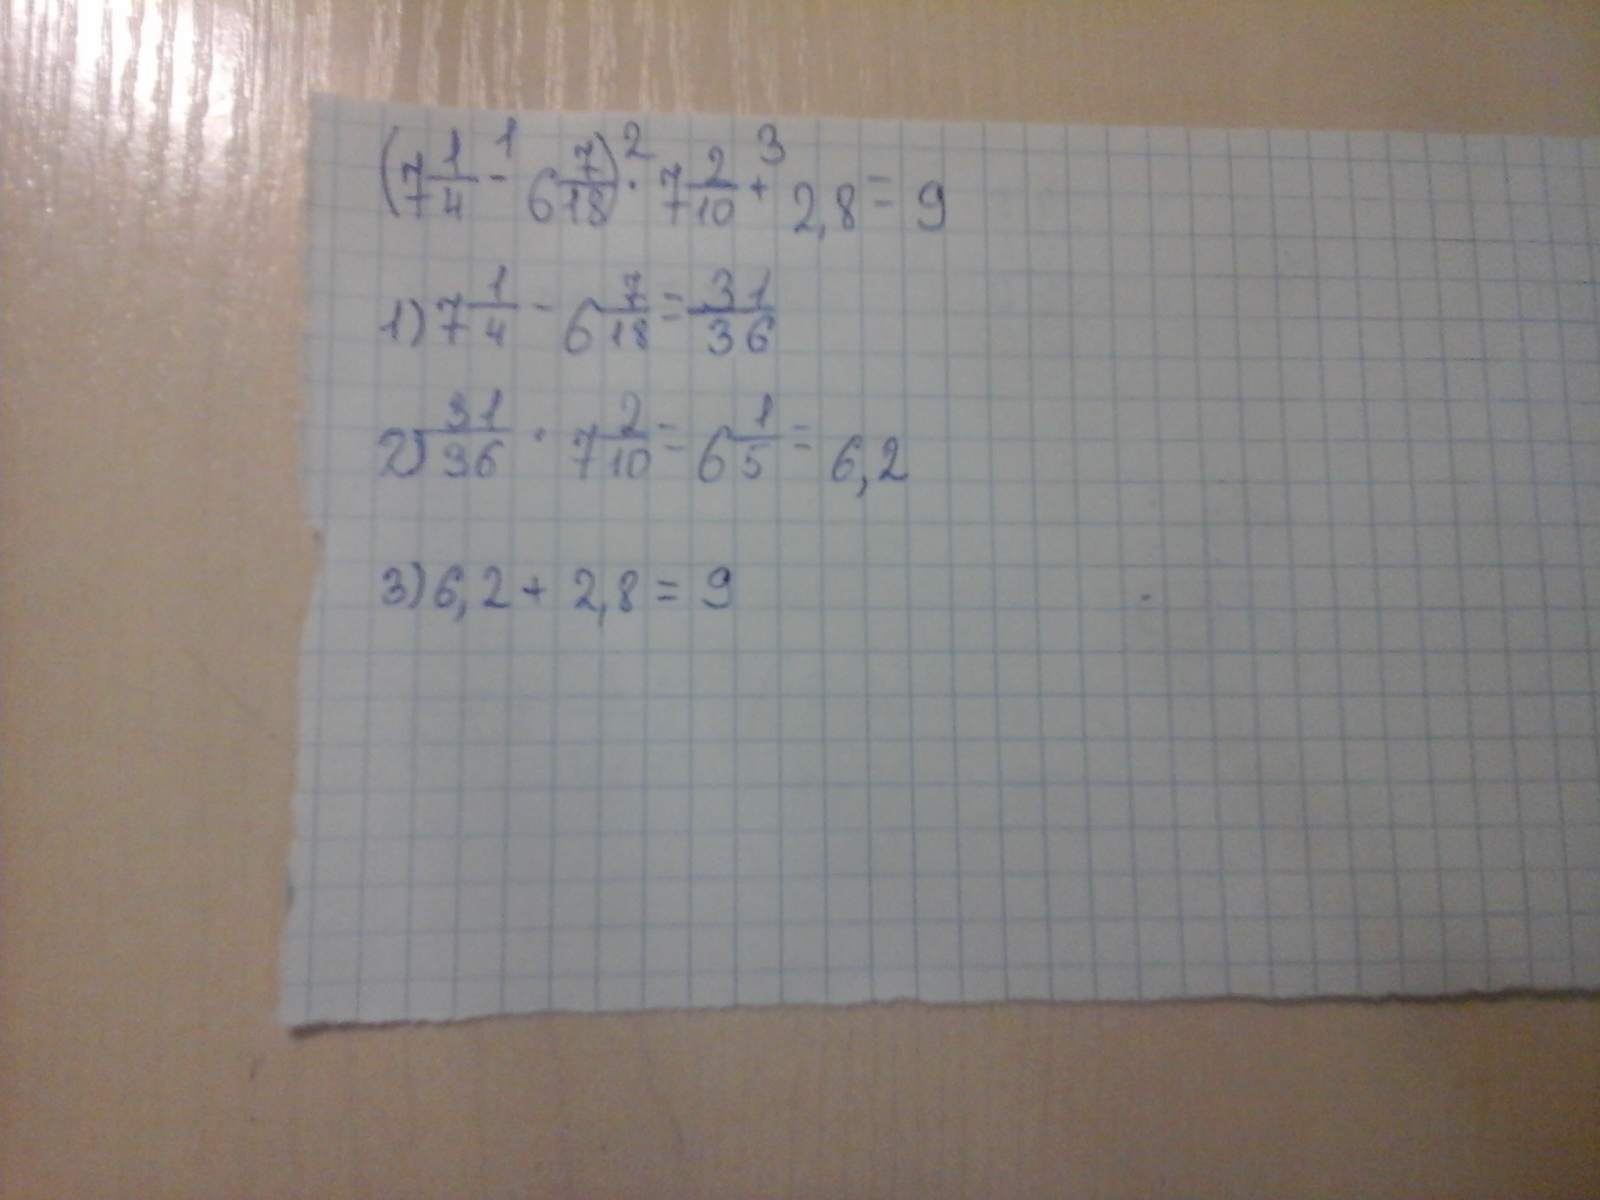 (7 1/4 -¹ 6 7/18) ·² 7 2/10 +³ 2,8 = 9
1) 7 1/4 - 6 7/18 = 31/36
2) 31/36 · 7 2/10 = 6 1/5 = 6,2
3) 6,2 + 2,8 = 9